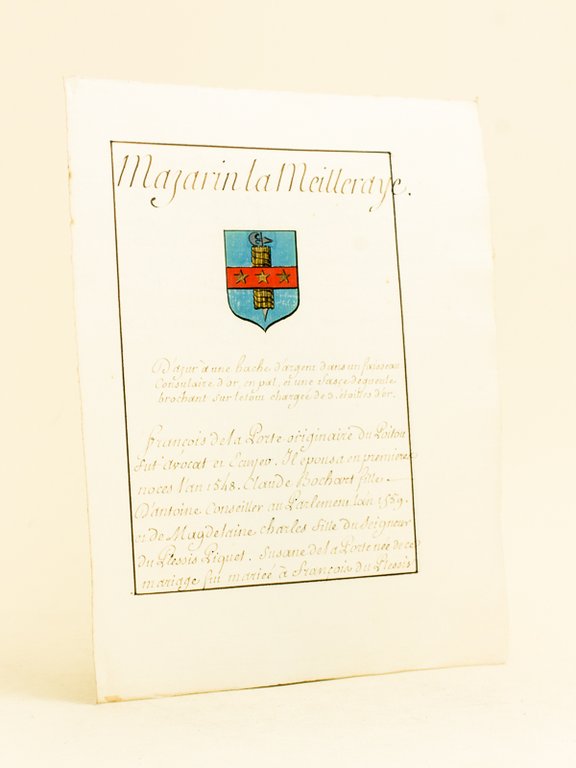 Mazarin la Meilleraye.
D'azur à une hache d'argent dans un faisseau
Consulaire d'or, en pal, et une fasce de gueule
brochant sur le tout chargée de 3. étoilles d'or.
françois de la Porte originaire du Poitou
fut avocat et Ecuyer. Il épousa en premieres
noces l'an 1548. Claude Bochart fille
D'antoine Conseiller au Parlement. et en 1559.
de Magdelaine charles fille du seigneur
du Plessis Piquet. Susane de la Porte née de ce
mariage fut mariée à françois du Plessis